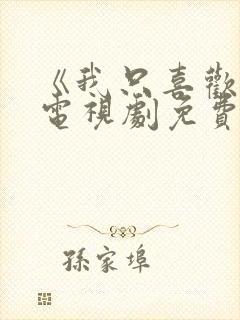 《我只喜歡
電視劇免費
孫家埠